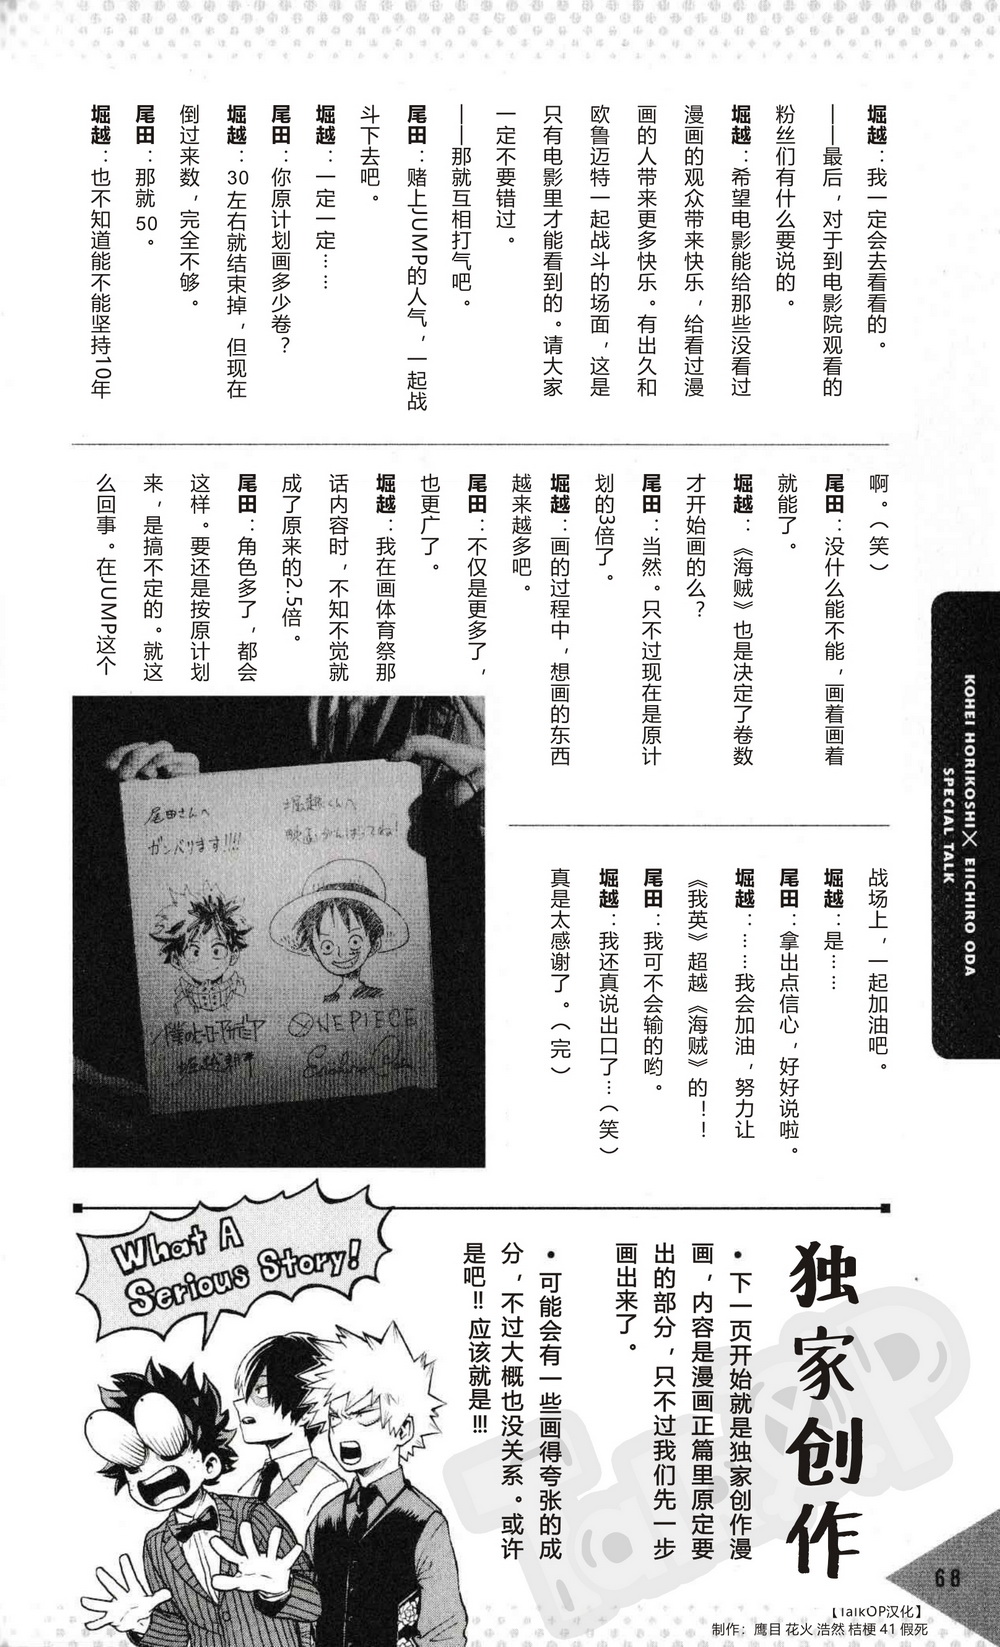 堀越：我一定会去看看的。
——最后，对于到电影院观看的
粉丝们有什么要说的。
堀越：希望电影能给那些没看过
漫画的观众带来快乐，给看过漫
画的人带来更多快乐。有出久和
欧鲁迈特一起战斗的场面，这是
只有电影里才能看到的。请大家
一定不要错过。
——那就互相打气吧。
尾田：赌上JUMP的人气，一起战
斗下去吧。
堀越：一定一定……
尾田：你原计划画多少卷？
堀越：30左右就结束掉，但现在
倒过来数，完全不够。
尾田：那就50。
堀越：也不知道能不能坚持10年
啊。（笑）
尾田：没什么能不能，画着画着
就能了。
堀越：《海贼》也是决定了卷数
才开始画的么？
尾田：当然。只不过现在是原计
划的3倍了。
堀越：画的过程中，想画的东西
越来越多吧。
尾田：不仅是更多了，
也更广了。
堀越：我在画体育祭那
话内容时，不知不觉就
成了原来的2.5倍。
尾田：角色多了，都会
这样。要还是按原计划
来，是搞不定的。就这
么回事。在JUMP这个
战场上，一起加油吧。
堀越：是……
尾田：拿出点信心，好好说啦。
堀越：……我会加油，努力让
《我英》超越《海贼》的！！
尾田：我可不会输的哟。
堀越：我还真说出口了…（笑）
真是太感谢了。（完）
KOHEI HORIKOSHI × EIICHIRO ODA
SPECIAL TALK
堀越くんへ
映画がんばってね!
ONE PIECE
尾田さんへ
ガンバります!!!!
僕のヒーローアカデミア
堀越耕平
独家创作
• 下一页开始就是独家创作漫
画，内容是漫画正篇里原定要
出的部分，只不过我们先一步
画出来了。
• 可能会有一些画得夸张的成
分，不过大概也没关系。或许
是吧!!应该就是!!!
What A
Serious Story!
TalkOP
68
【TalkOP汉化】
制作：鹰目 花火 浩然 桔梗 41 假死